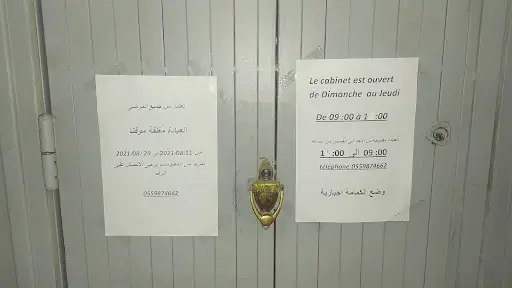 نعتذر من جميع المرضى
العيادة مغلقة مؤقتا
من 2021/08/11 الى 2021/08/29
0559874662
Le cabinet est ouvert
de Dimanche au Jeudi
De 09 :00 à 1 :00
09 :00 الى 1 :00
téléphone 0559874662
وضع الكمامة اجبارية